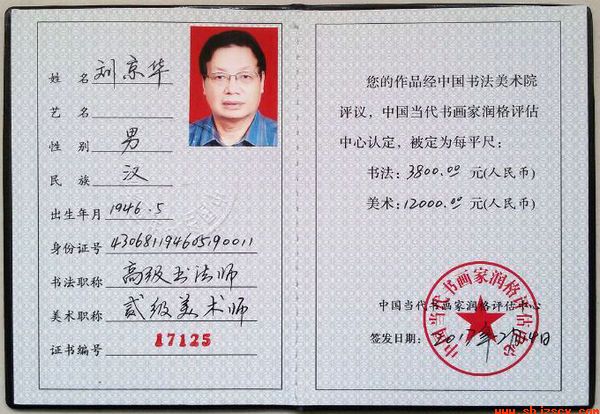 姓名 刘京华
艺名
性别 男
民族 汉
出生年月 1946.5
身份证号 430681194605190011
书法职称 高级书法师
美术职称 贰级美术师
证书编号 17125
您的作品经中国书法美术院
评议，中国当代书画家润格评估
中心认定，被定为每平尺：
书法：3800.00 元(人民币)
美术：12000.00 元(人民币)
中国当代书画家润格评估中心
签发日期：
中国当代书画家润格评估中心